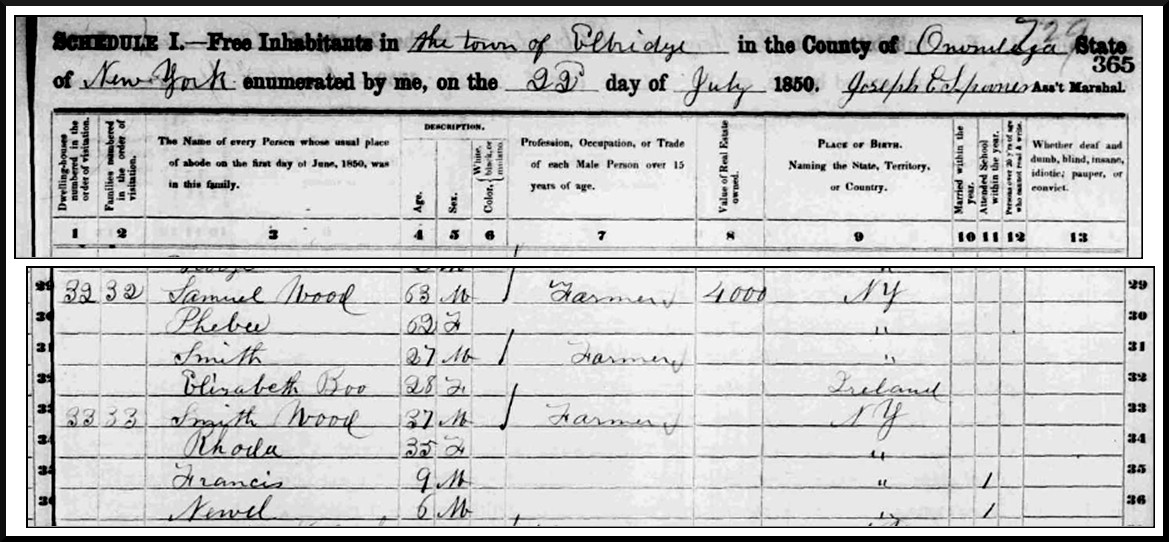 729
SCHEDULE I.—Free Inhabitants in the town of Elbridge in the County of Onondaga State
365
of New York enumerated by me, on the 22 day of July 1850. Joseph E Ass't Marshal.
Dwelling-houses numbered in the order of visitation.
Families numbered in the order of visitation.
The Name of every Person whose usual place of abode on the first day of June, 1850, was in this family.
DESCRIPTION.
Age.
Sex.
Color, White, black, or mulatto.
Profession, Occupation, or Trade of each Male Person over 15 years of age.
Value of Real Estate owned.
PLACE OF BIRTH. Naming the State, Territory, or Country.
Married within the year.
Attended School within the year.
Persons over 20 y'rs of age who cannot read & write.
Whether deaf and dumb, blind, insane, idiotic; pauper, or convict.
1 2 3 4 5 6 7 8 9 10 11 12 13
29 32 32 Samuel Wood 63 M / Farmer 4000 NY 29
30 Phebee 62 F " 30
31 Smith 27 M / Farmer " 31
32 Elisabeth Boo 28 F Ireland 32
33 33 33 Smyth Wood 37 M / Farmer NY 33
34 Rhoda 35 F " 34
35 Francis 9 M " / 35
36 Newel 6 M " / 36